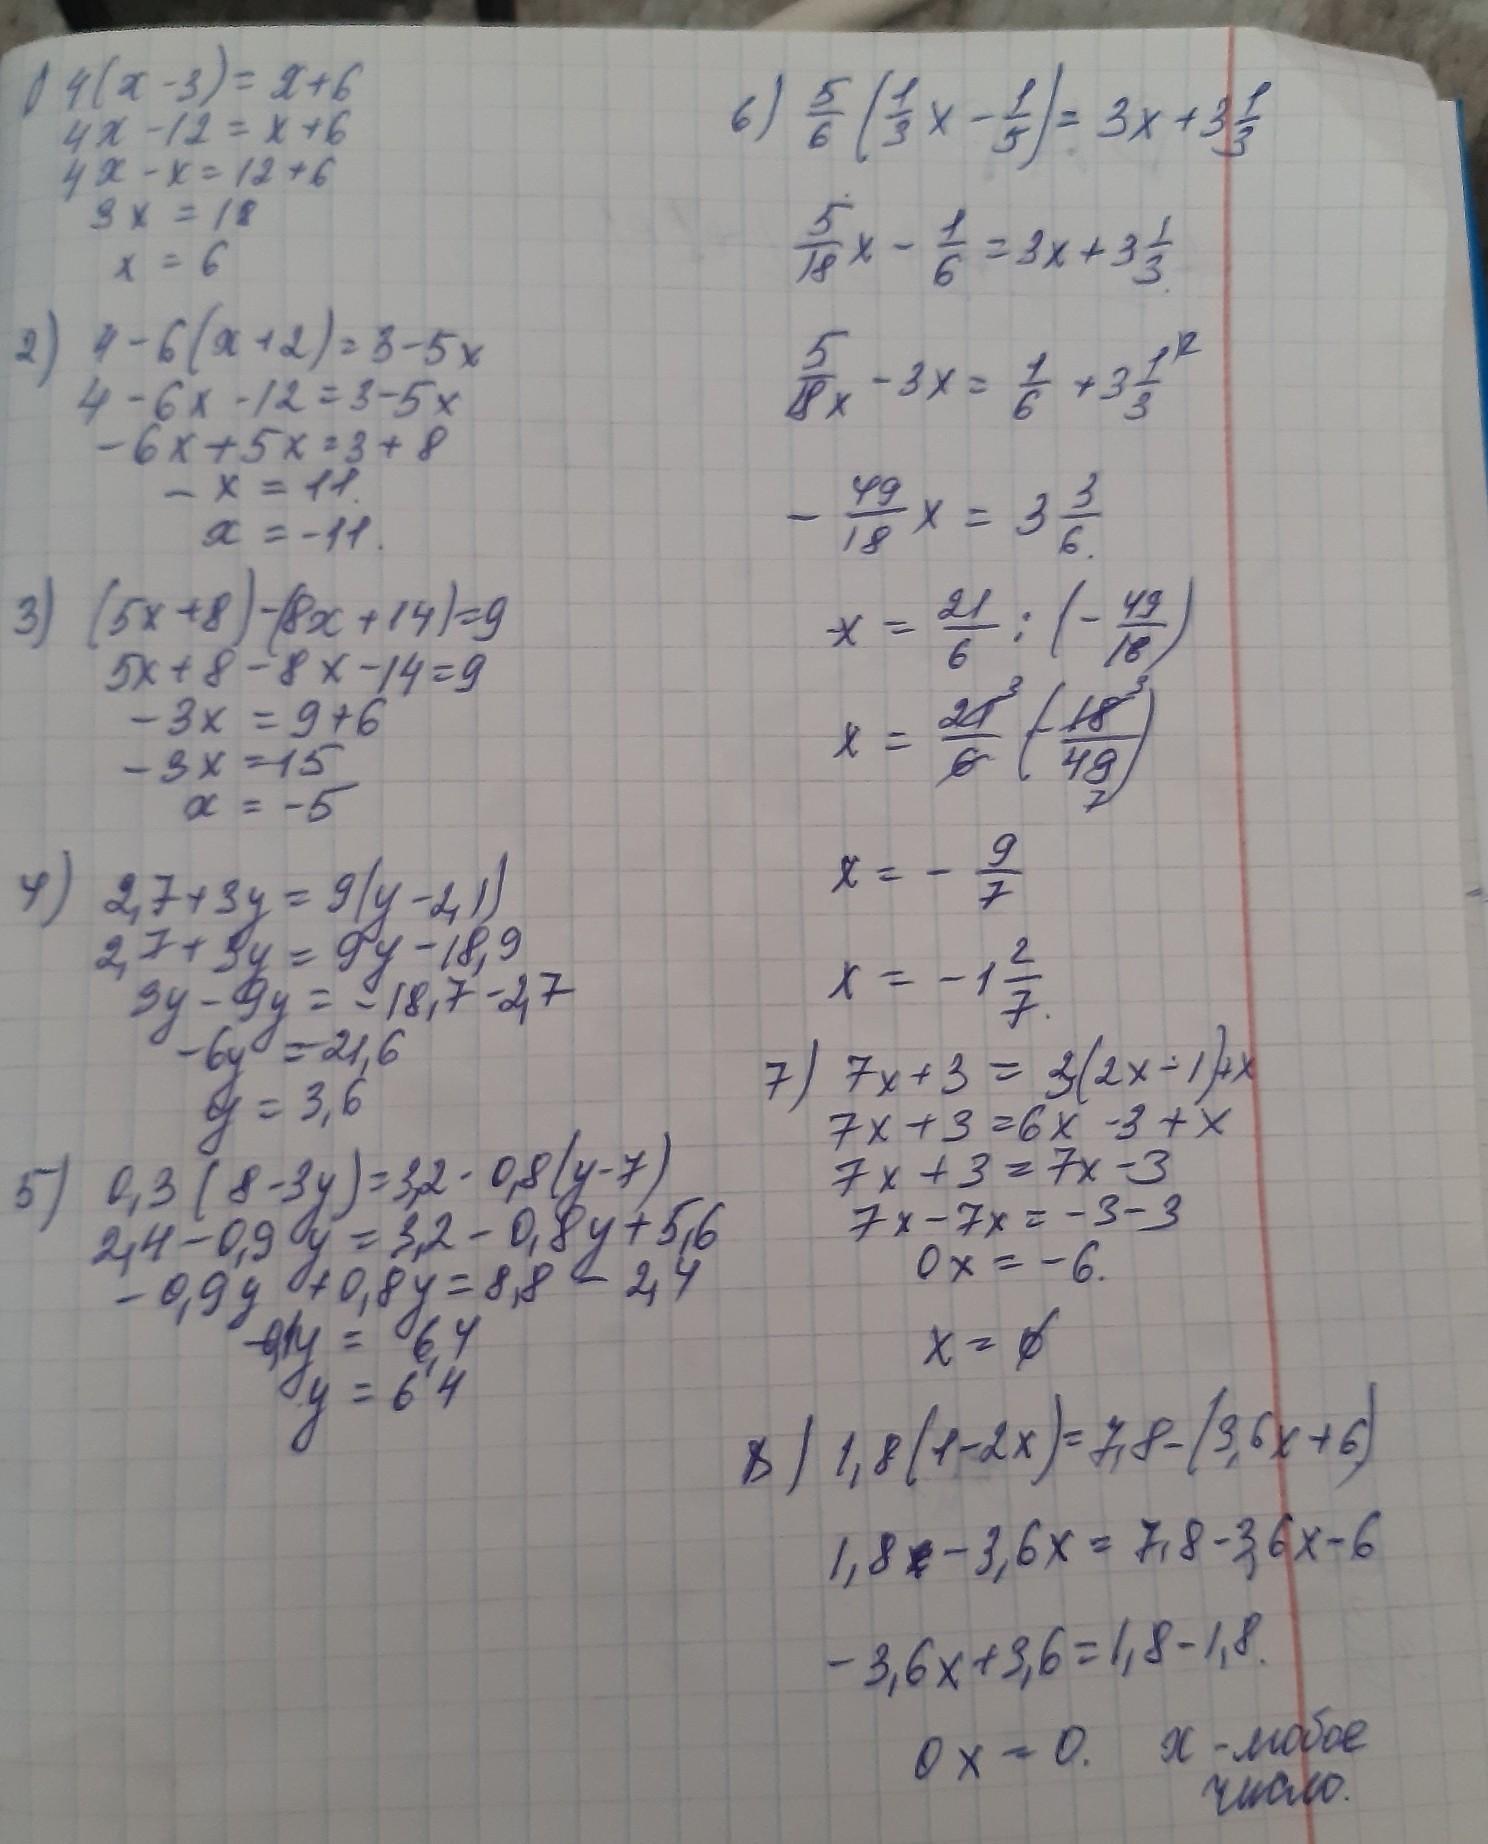 1) 4(x-3)=x+6
4x-12=x+6
4x-x=12+6
3x=18
x=6
2) 4-6(x+2)=3-5x
4-6x-12=3-5x
-6x+5x=3+8
-x=11.
x=-11.
3) (5x+8)-(8x+14)=9
5x+8-8x-14=9
-3x=9+6
-3x=15
x=-5
4) 2,7+3y=9(y-2,1)
2,7+3y=9y-18,9
3y-9y=-18,7-2,7
-6y=-21,6
y=3,6
5) 0,3(8-3y)=3,2-0,8(y-7)
2,4-0,9y=3,2-0,8y+5,6
-0,9y+0,8y=8,8-2,4
-0,1y=6,4
y=64
6) 5/6(1/3x-1/5)=3x+3 1/3
5/18x-1/6=3x+3 1/3.
5/18x-3x=1/6+3 1/3 ²
-49/18x=3 3/6.
x=21/6:(-49/18)
x=21³/6(-18³/49 7)
x=-9/7
x=-1 2/7.
7) 7x+3=3(2x-1)+x
7x+3=6x-3+x
7x+3=7x-3
7x-7x=-3-3
0x=-6.
x=ø
8) 1,8(1-2x)=7,8-(3,6x+6)
1,8-3,6x=7,8-3,6x-6
-3,6x+3,6=1,8-1,8.
0x=0. x-любое
число.